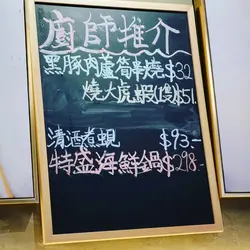 廚師推介
黑豚肉蘆筍串燒$32
燒大虎蝦(1隻)$51
清酒煮蜆 $93.-
特盛海鮮鍋$298.-